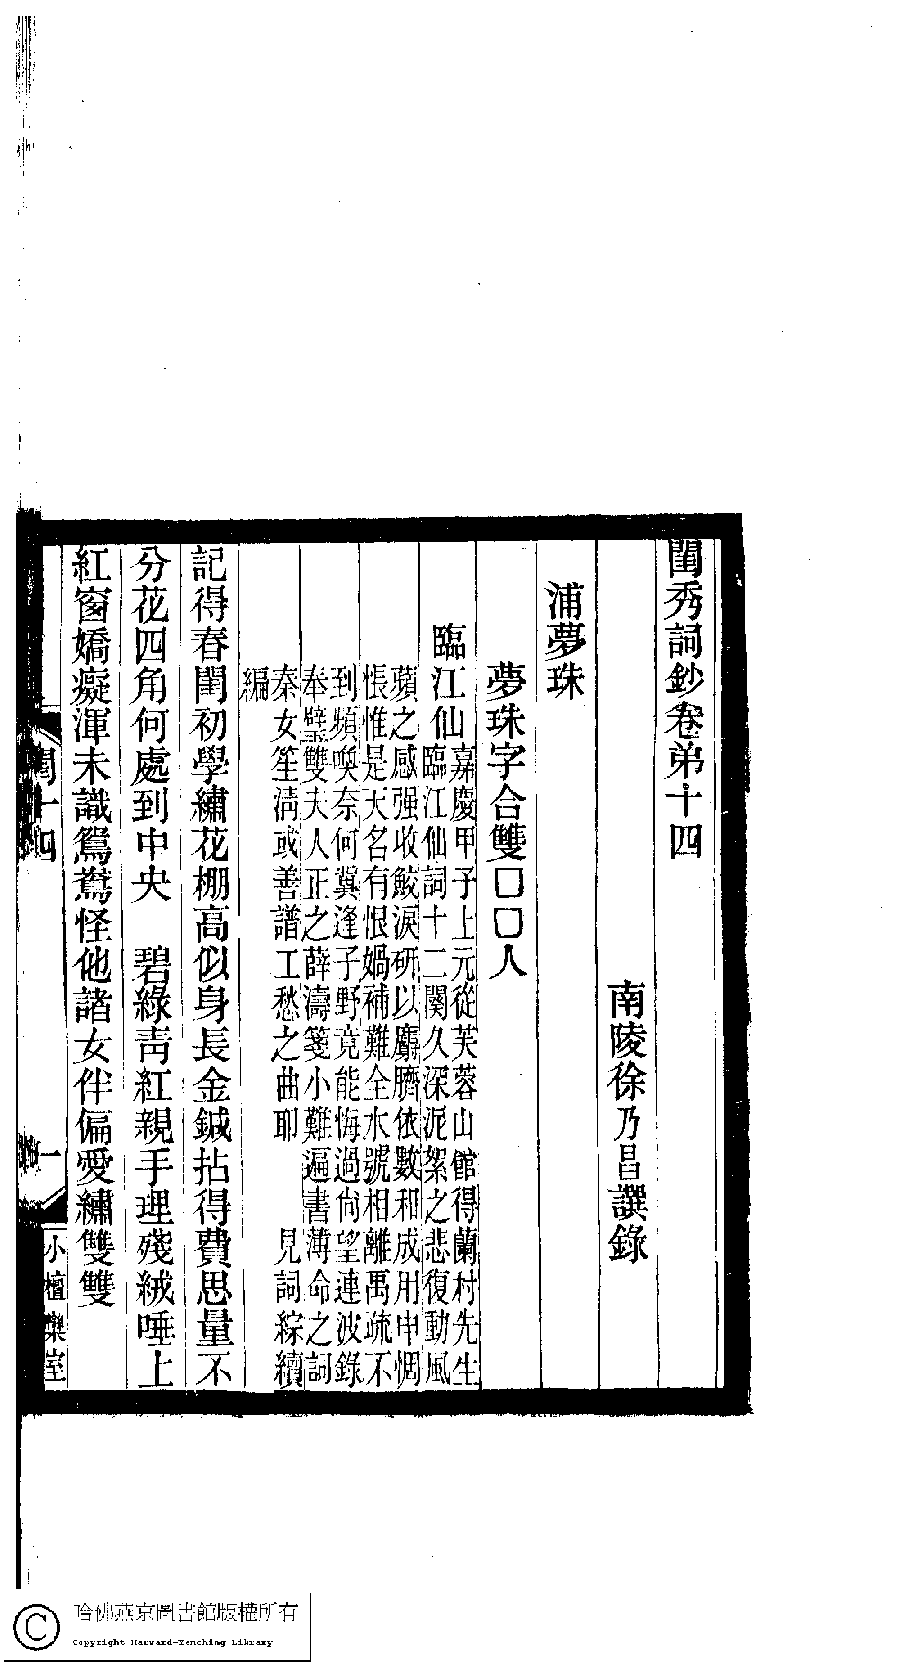 閨秀詞鈔卷弟十四
南陵徐乃昌譔錄
浦夢珠
夢珠字合雙□□人
臨江仙
嘉慶甲子上元從芙蓉山館得蘭村先生
臨江仙詞十二闋久深泥絮之悲復動風
蘋之感强收鮫淚研以麝臍依數和成用申惆
悵惟是天名有恨媧補難全水號相離禹疏不
到頻喚奈何冀逢子野竟能悔過尙望連波錄
奉璧雙夫人正之薛濤箋小難遍書薄命之詞
秦女笙淸或善譜工愁之曲聊　見詞綜續
編
記得春閨初學繡花棚高似身長金鍼拈得費思量不
分花四角何處到中央　碧綠靑紅親手理殘絨唾上
紅窗嬌癡渾未識鴛鴦怪他諸女伴偏愛繡雙雙
閨十四
一
小檀欒室
哈佛燕京圖書館版權所有
Copyright Harvard-Yenching Library